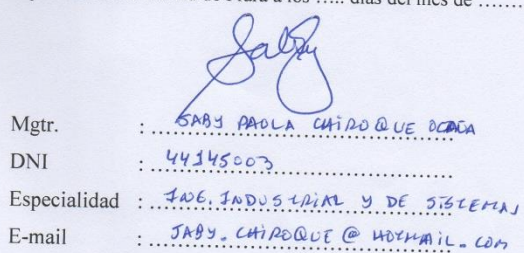 días del mes de ........
Mgtr. : GABY PAOLA CHIROQUE
DNI : 44145003
Especialidad : ING. INDUSTRIAL Y DE SISTEMAS
E-mail : GABY.CHIROQUE@HOTMAIL.COM